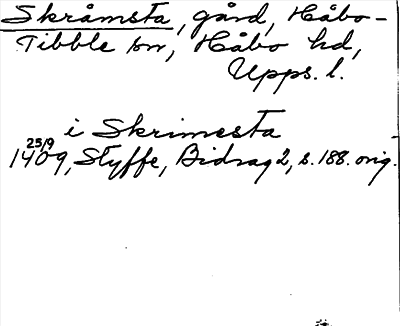 Skråmsta, gård, Håbo-
Tibble sn, Håbo hd,
Upps. l.
i Skrimesta
25/9
1409, Styffe, Bidrag 2, s. 188. orig.